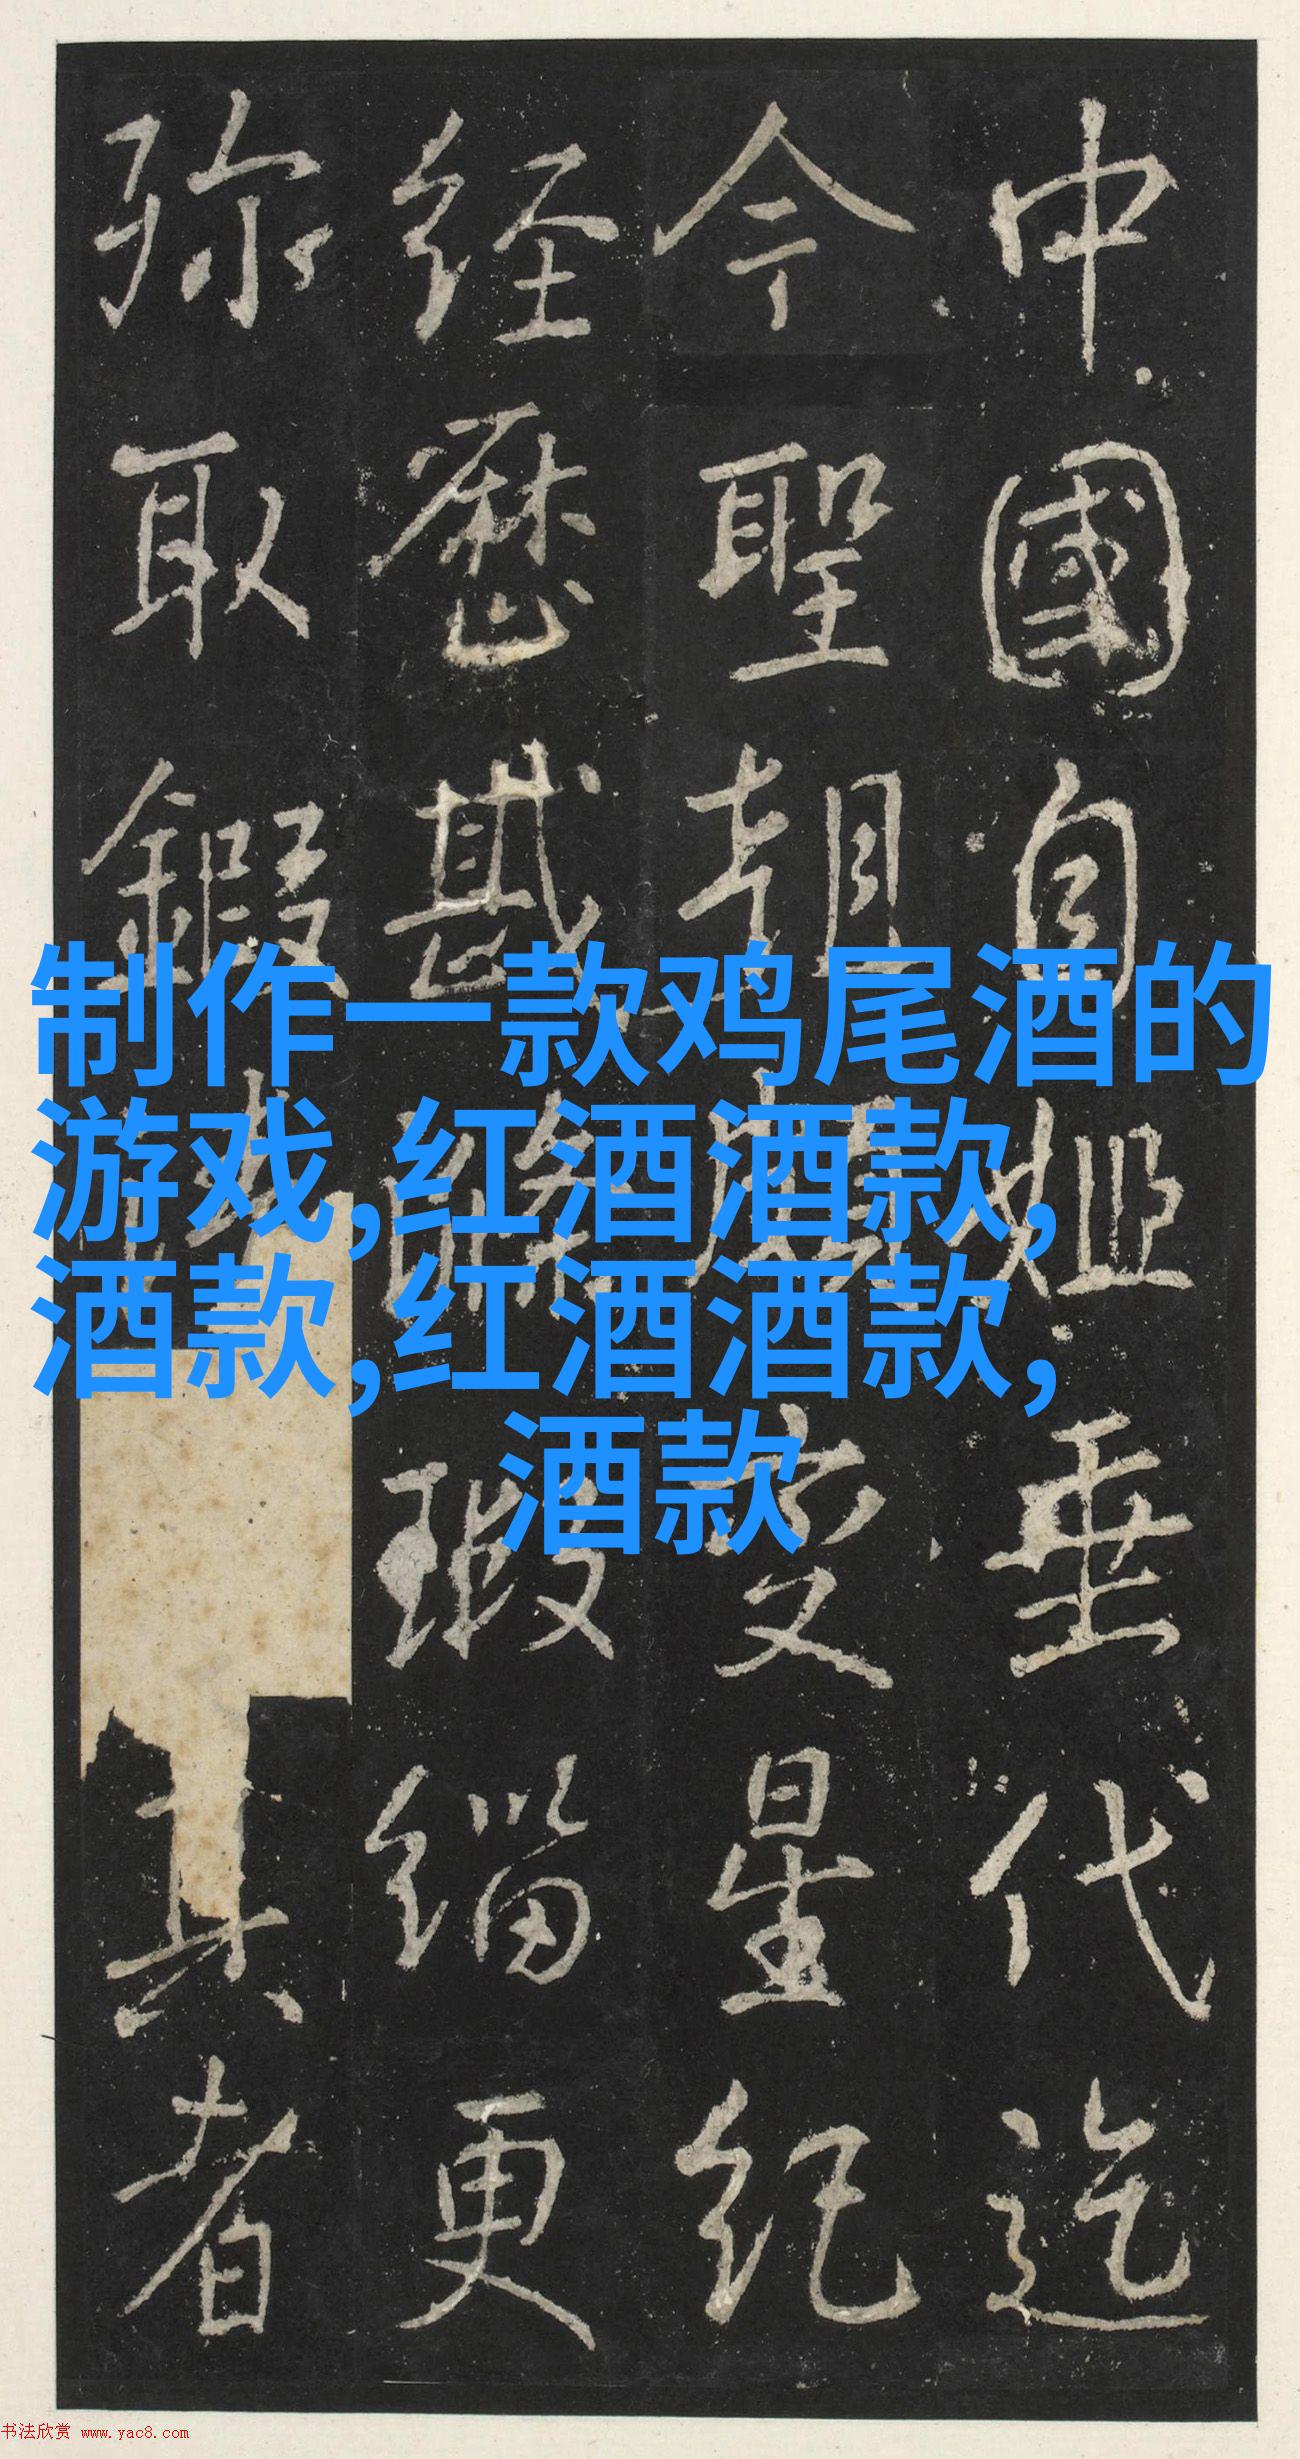 中國自姬垂代迄
今聖朝星紀
經歷瑕緇更
弥取鍜真者
制作一款鸡尾酒的
游戏,红酒酒款,
酒款,红酒酒款,
酒款
书法欣赏 www.yac8.com